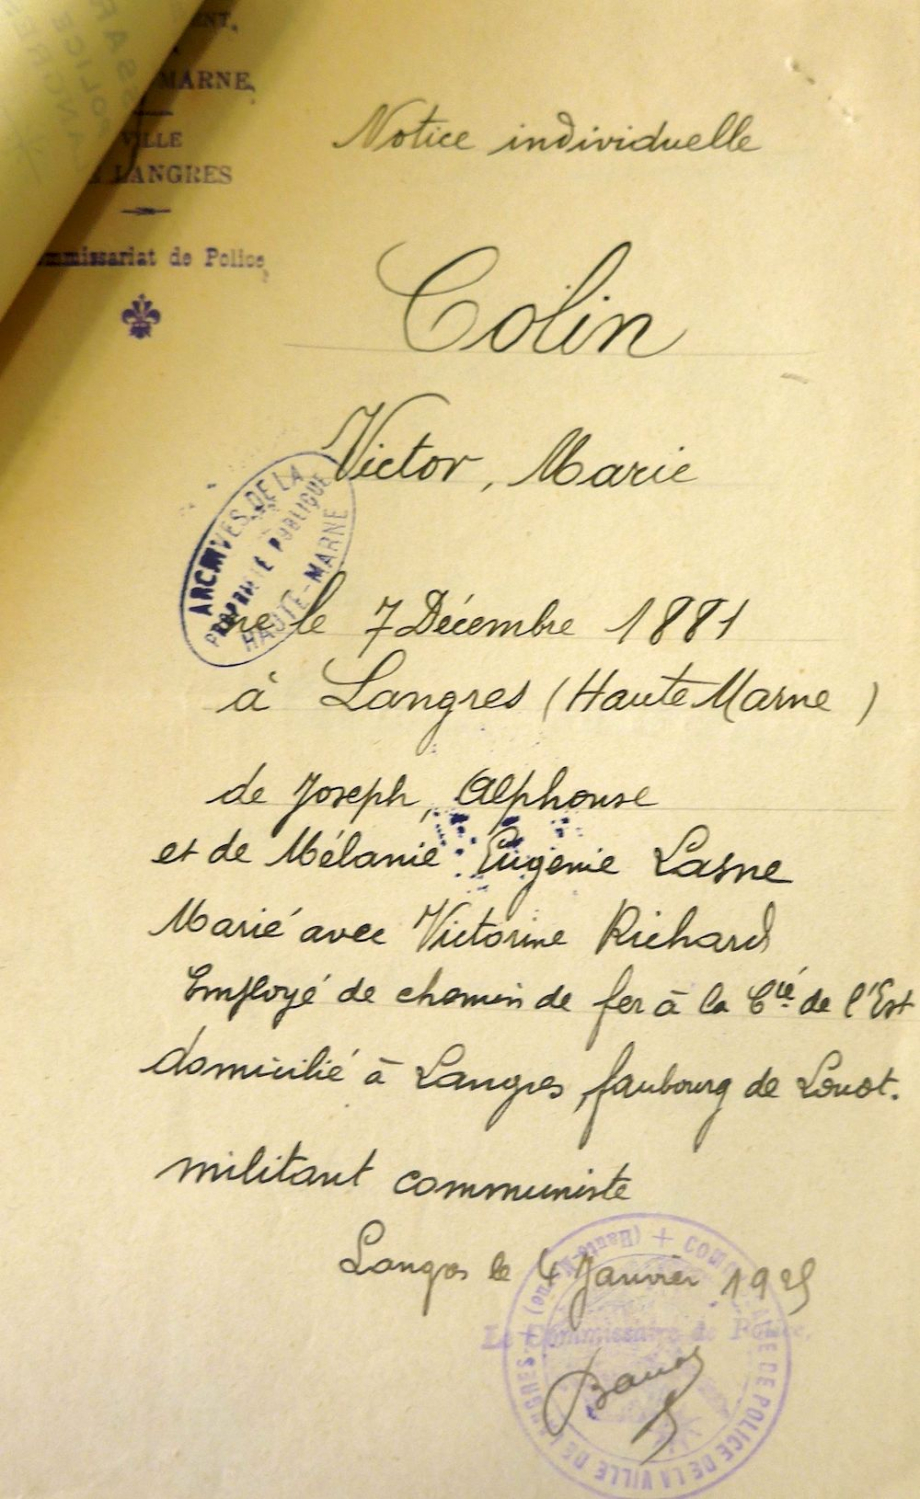 MARNE,
VILLE
LANGRES
Commissariat de Police
Notice individuelle
Colin
Victor, Marie
ARCHIVES DE LA
PROPRIÉTÉ PUBLIQUE
HAUTE-MARNE
né le 7 Décembre 1881
à Langres (Haute Marne)
de Joseph, Alphonse
et de Mélanie Eugénie Lasne
Marié avec Victorine Richard
Employé de chemin de fer à la Cié de l'Est
domicilié à Langres, faubourg de Louot.
militant communiste
Langres le 4 Janvier 1925
Le Commissaire de Police,
COMMISSAIRE DE POLICE DE LA VILLE DE LANGRES + (Haute-Marne) +